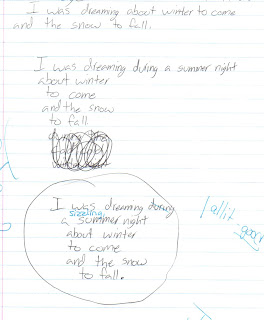 I was dreaming about winter to come
and the snow to fall.
I was dreaming during a summer night
about winter
to come
and the snow
to fall
I was dreaming during
sizzling
a summer night
about winter
to come
and the snow
to fall.
allit-
good